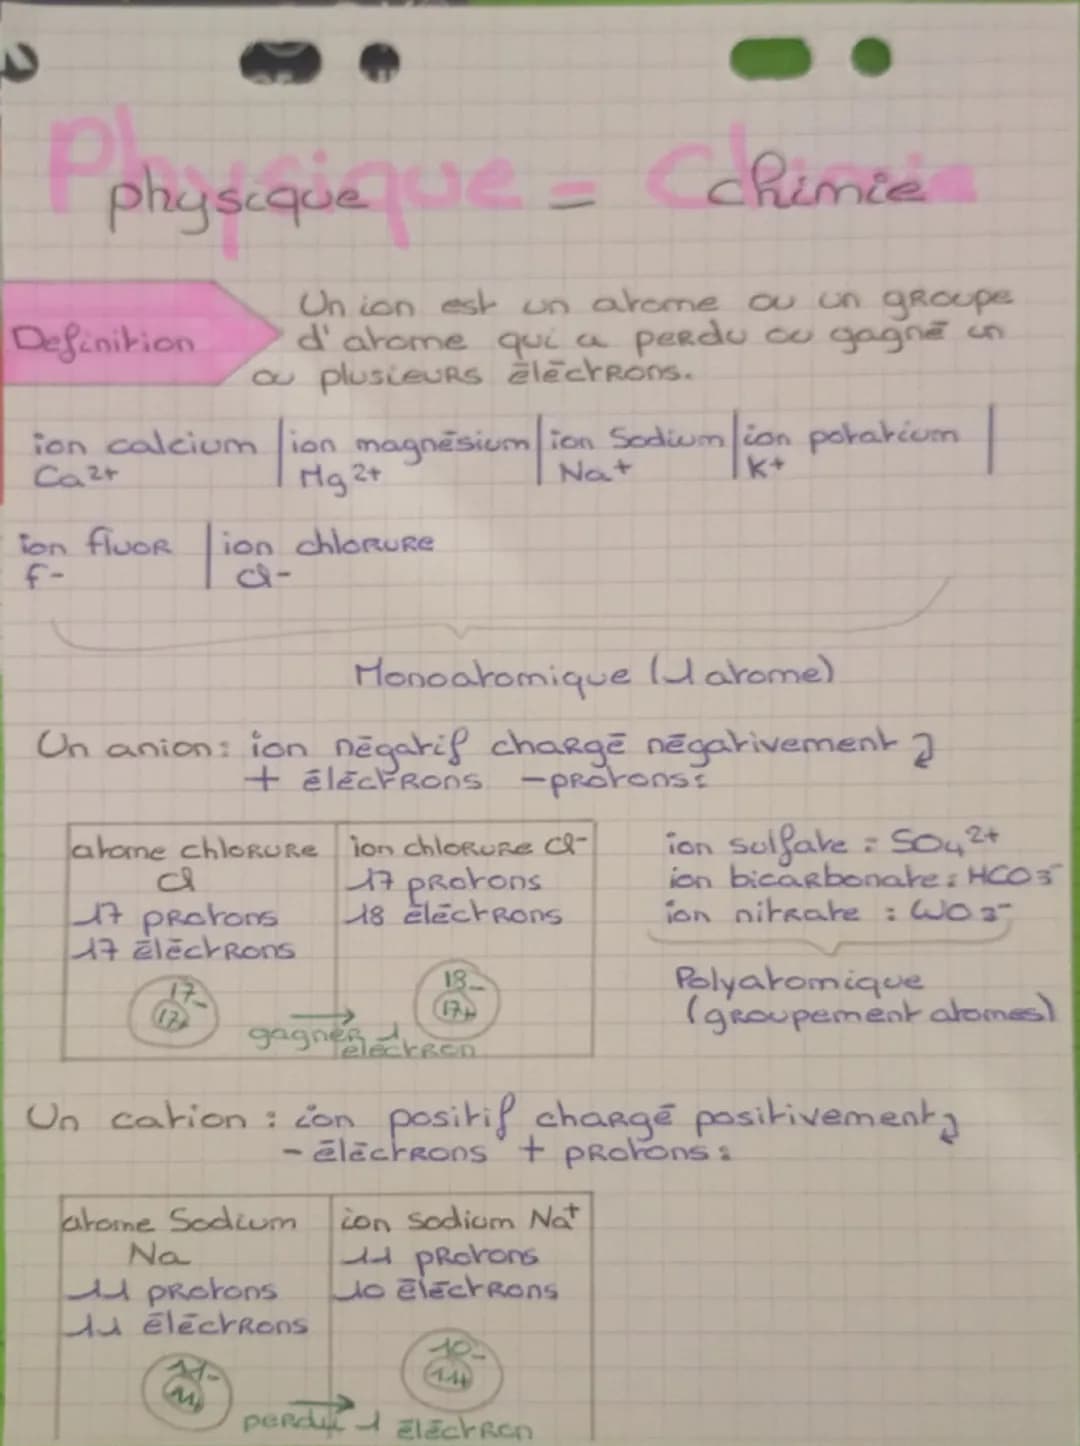 Physique = Chimie
physique chimie
Un ion est un atome ou un groupe
Definition
d'atome qui a perdu ou gagné un
ou plusieurs éléctrons.
ion calcium | ion magnésium | ion Sodium | ion potatium |
Ca2+ | Mg2+ | Na+ | K+
ion fluor | ion chlorure
F- | Cl-
Monoatomique (1 atome)
Un anion : ion négatif chargé négativement
+ éléctrons -protons :
atome chlorure | ion chlorure Cl-
Cl
17 protons
17 éléctrons
17 protons
18 éléctrons
17-
17+
18-
17+
gagner 1
électron
ion sulfate : SO4 2+
ion bicarbonate : HCO3-
ion nitrate : WO3-
Polyatomique
(groupement atomes)
Un cation : ion positif chargé positivement
- éléctrons + protons :
atome Sodium | ion sodium Na+
Na
11 protons
11 éléctrons
11 protons
10 éléctrons
11-
11+
10-
11+
perdu 1 éléctron